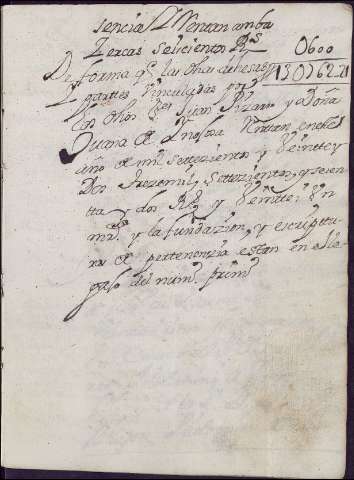 sencia Y Rentan amba
Zercas Seiscientos Rs 0600
De forma qe las dhas dehesas 130762.21
Y partes Vinculadas por
los dhos Juan Pizarro y Doña
Juana de Rentan en el
año de mil Setezientos y Veintey
Dos trezemil Setezientos, y sesen
tta y dos Rs y Veintei Un
mrs y la fundazion, y escriptu
ra de pertenenzia estan en el le
gajo del numo primo